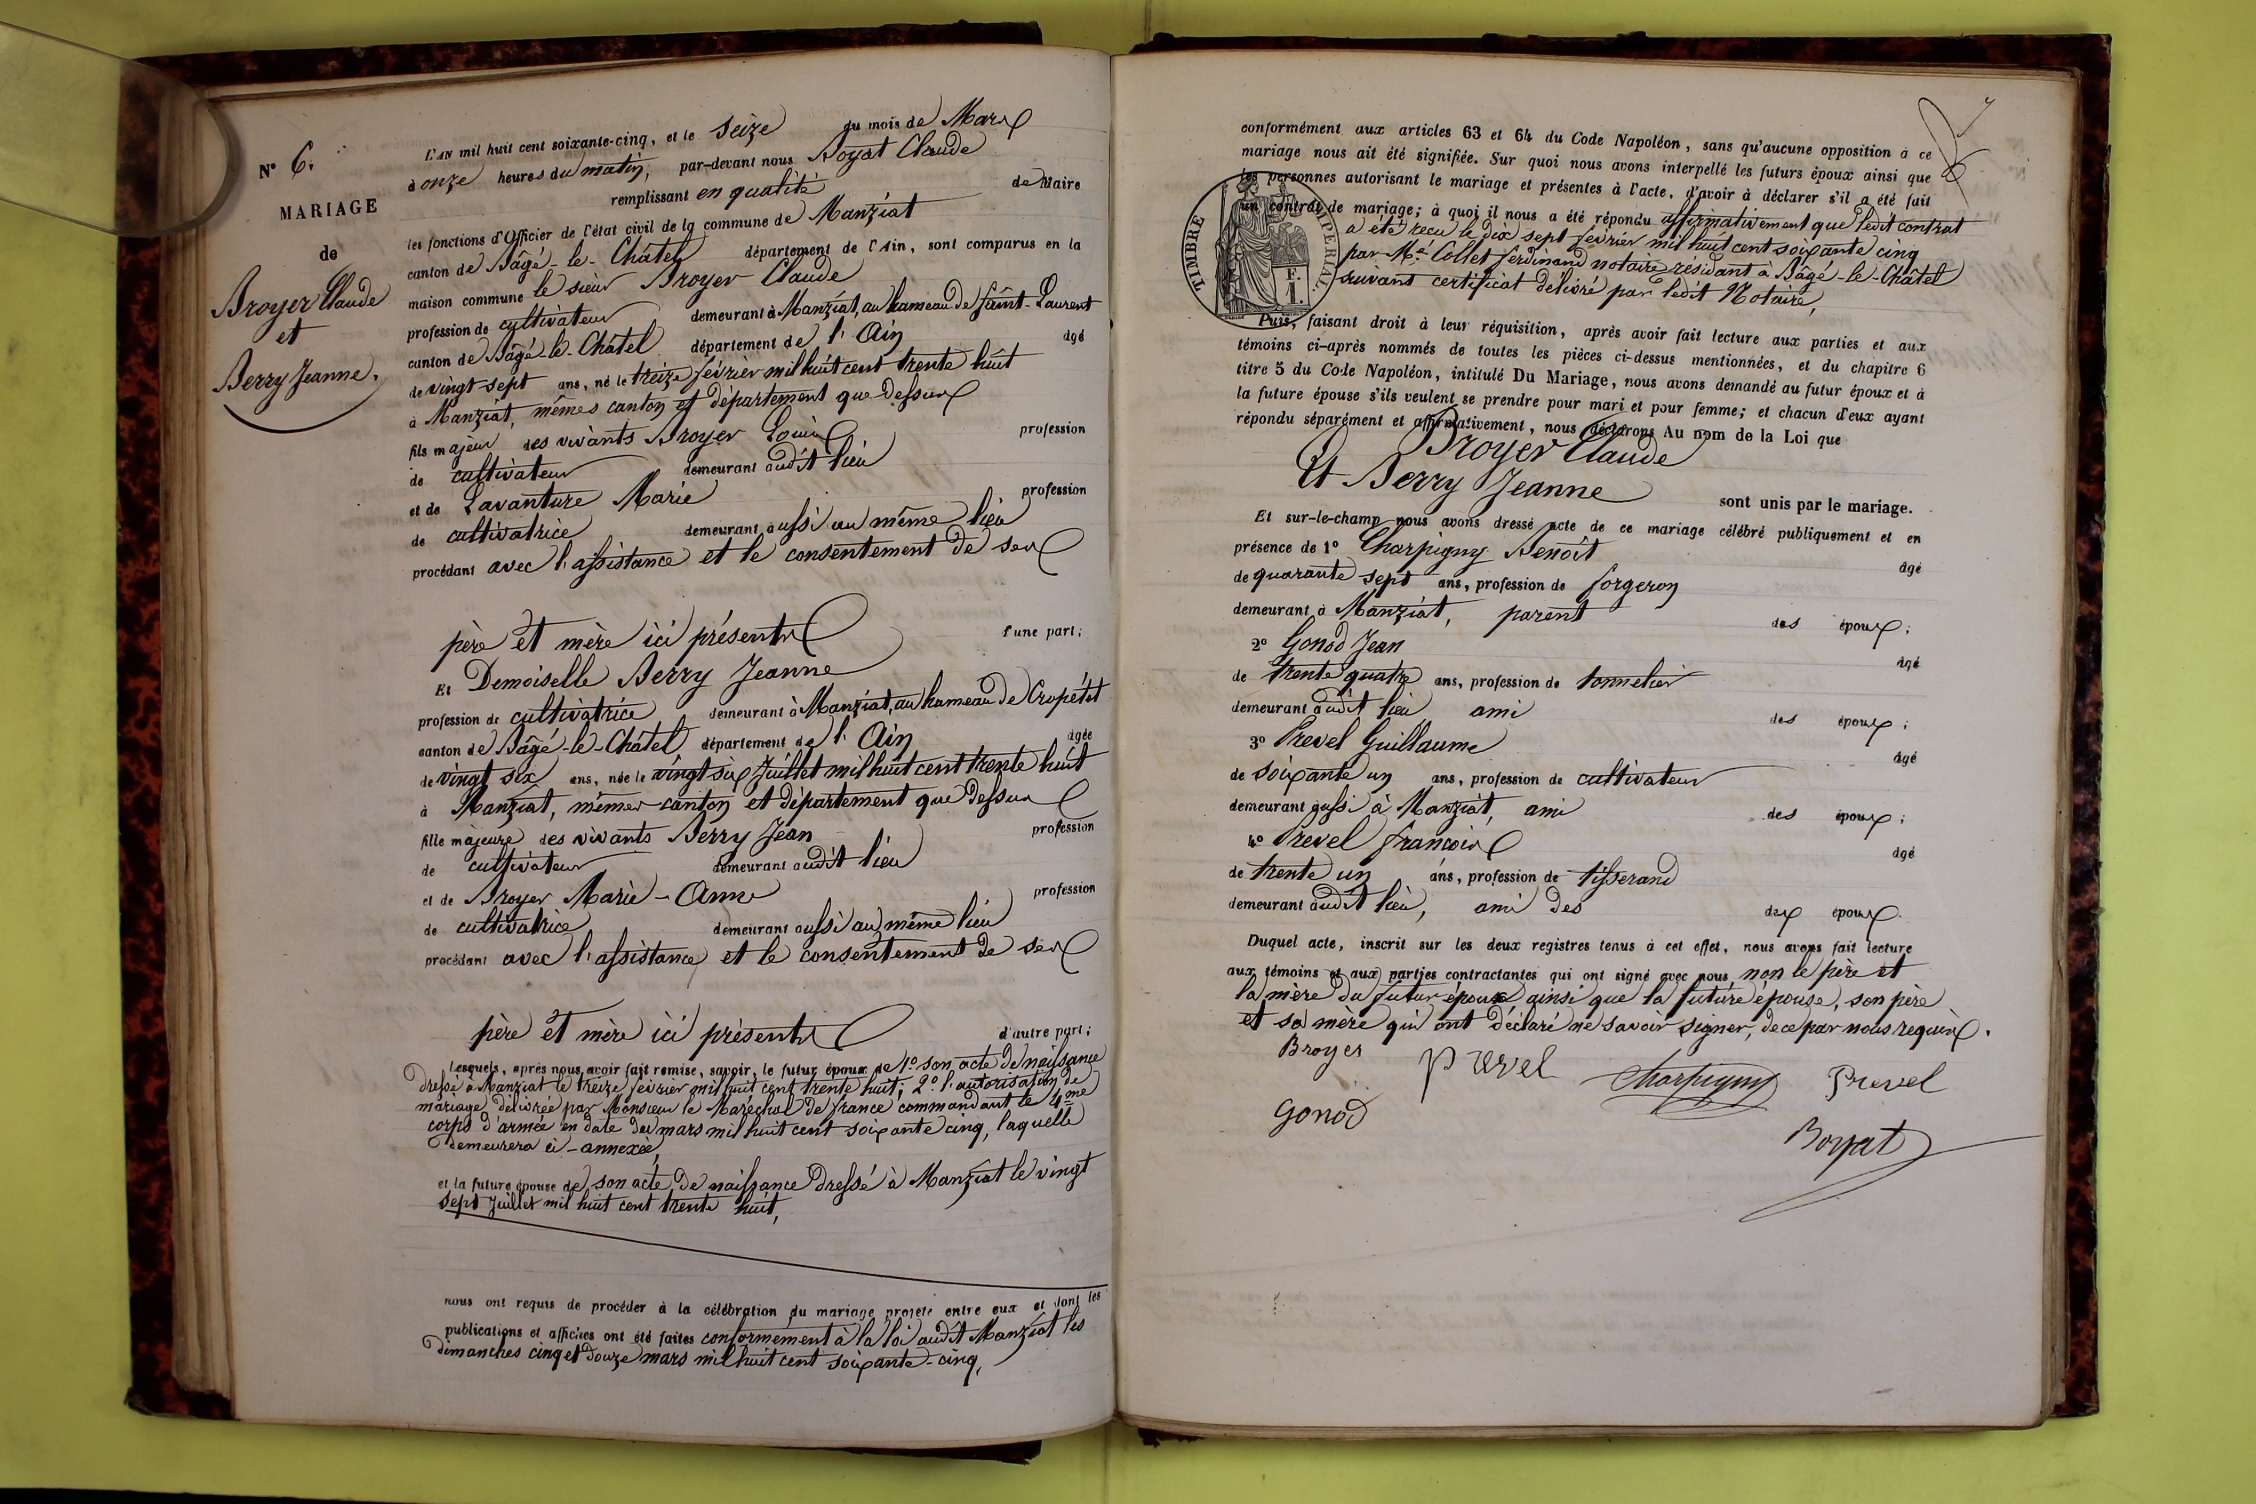 N° 6.
MARIAGE
de
Broyer Claude
et
Berry Jeanne.
L'AN mil huit cent soixante-cinq, et le seize du mois de Mars
à onze heures du matin, par-devant nous Boyat Claude
remplissant en qualité de Maire
les fonctions d'Officier de l'état civil de la commune de Manziat
canton de Bâgé-le-Châtel département de l'Ain, sont comparus en la
maison commune le sieur Broyer Claude
profession de cultivateur demeurant à Manziat, au hameau de Saint-Laurent
canton de Bâgé-le-Châtel département de l'Ain âgé
de vingt sept ans, né le treize février mil huit cent trente huit
à Manziat, mêmes canton et département que dessus
fils majeur des vivants Broyer Louis profession
de cultivateur demeurant audit lieu
et de Lavanture Marie profession
de cultivatrice demeurant aussi au même lieu
procédant avec l'assistance et le consentement de ses
père et mère ici présents d'une part;
Et Demoiselle Berry Jeanne
profession de cultivatrice demeurant à Manziat, au hameau de Cropétet
canton de Bâgé-le-Châtel département de l'Ain âgée
de vingt six ans, née le vingt six Juillet mil huit cent trente huit
à Manziat, mêmes canton et département que dessus
fille majeure des vivants Berry Jean profession
de cultivateur demeurant audit lieu
et de Broyer Marie-Anne profession
de cultivatrice demeurant aussi au même lieu
procédant avec l'assistance et le consentement de ses
père et mère ici présents d'autre part;
Lesquels, après nous avoir fait remise, savoir, le futur époux de 1° son acte de naissance
dressé à Manziat le treize février mil huit cent trente huit; 2° l'autorisation de
mariage délivrée par Monsieur le Maréchal de france commandant le 4me
corps d'armée en date du mars mil huit cent soixante cinq, laquelle
demeurera ci-annexée,
et la future épouse de son acte de naissance dressé à Manziat le vingt
sept Juillet mil huit cent trente huit,
nous ont requis de procéder à la célébration du mariage projeté entre eux et dont les
publications et affiches ont été faites conformément à la loi audit Manziat les
dimanches cinq et douze mars mil huit cent soixante-cinq,
conformément aux articles 63 et 64 du Code Napoléon, sans qu'aucune opposition à ce
mariage nous ait été signifiée. Sur quoi nous avons interpellé les futurs époux ainsi que
les personnes autorisant le mariage et présentes à l'acte, d'avoir à déclarer s'il a été fait
un contrat de mariage; à quoi il nous a été répondu affirmativement que ledit contrat
a été reçu le dix sept février mil huit cent soixante cinq
par Mé Collet ferdinand notaire résidant à Bâgé-le-Châtel
suivant certificat délivré par ledit Notaire,
TIMBRE IMPERIAL.
F.
1.
Puis, faisant droit à leur réquisition, après avoir fait lecture aux parties et aux
témoins ci-après nommés de toutes les pièces ci-dessus mentionnées, et du chapitre 6
titre 5 du Code Napoléon, intitulé Du Mariage, nous avons demandé au futur époux et à
la future épouse s'ils veulent se prendre pour mari et pour femme; et chacun d'eux ayant
répondu séparément et affirmativement, nous déclarons Au nom de la Loi que
Broyer Claude
Et Berry Jeanne sont unis par le mariage.
Et sur-le-champ nous avons dressé acte de ce mariage célébré publiquement et en
présence de 1° Charpigny Benoît âgé
de quarante sept ans, profession de forgeron
demeurant à Manziat, parent des époux;
2° Gonod Jean âgé
de trente quatre ans, profession de tonnelier
demeurant audit lieu ami des époux;
3° Prevel Guillaume âgé
de soixante un ans, profession de cultivateur
demeurant aussi à Manziat, ami des époux;
4° Prevel françois âgé
de trente un ans, profession de tisserand
demeurant audit lieu, ami des dex époux.
Duquel acte, inscrit sur les deux registres tenus à cet effet, nous avons fait lecture
aux témoins et aux parties contractantes qui ont signé avec nous non le père et
la mère du futur époux ainsi que la future épouse, son père
et sa mère qui ont déclaré ne savoir signer, de ce par nous requis.
Broyer Prevel Charpigny Prevel
Gonod
Boyat